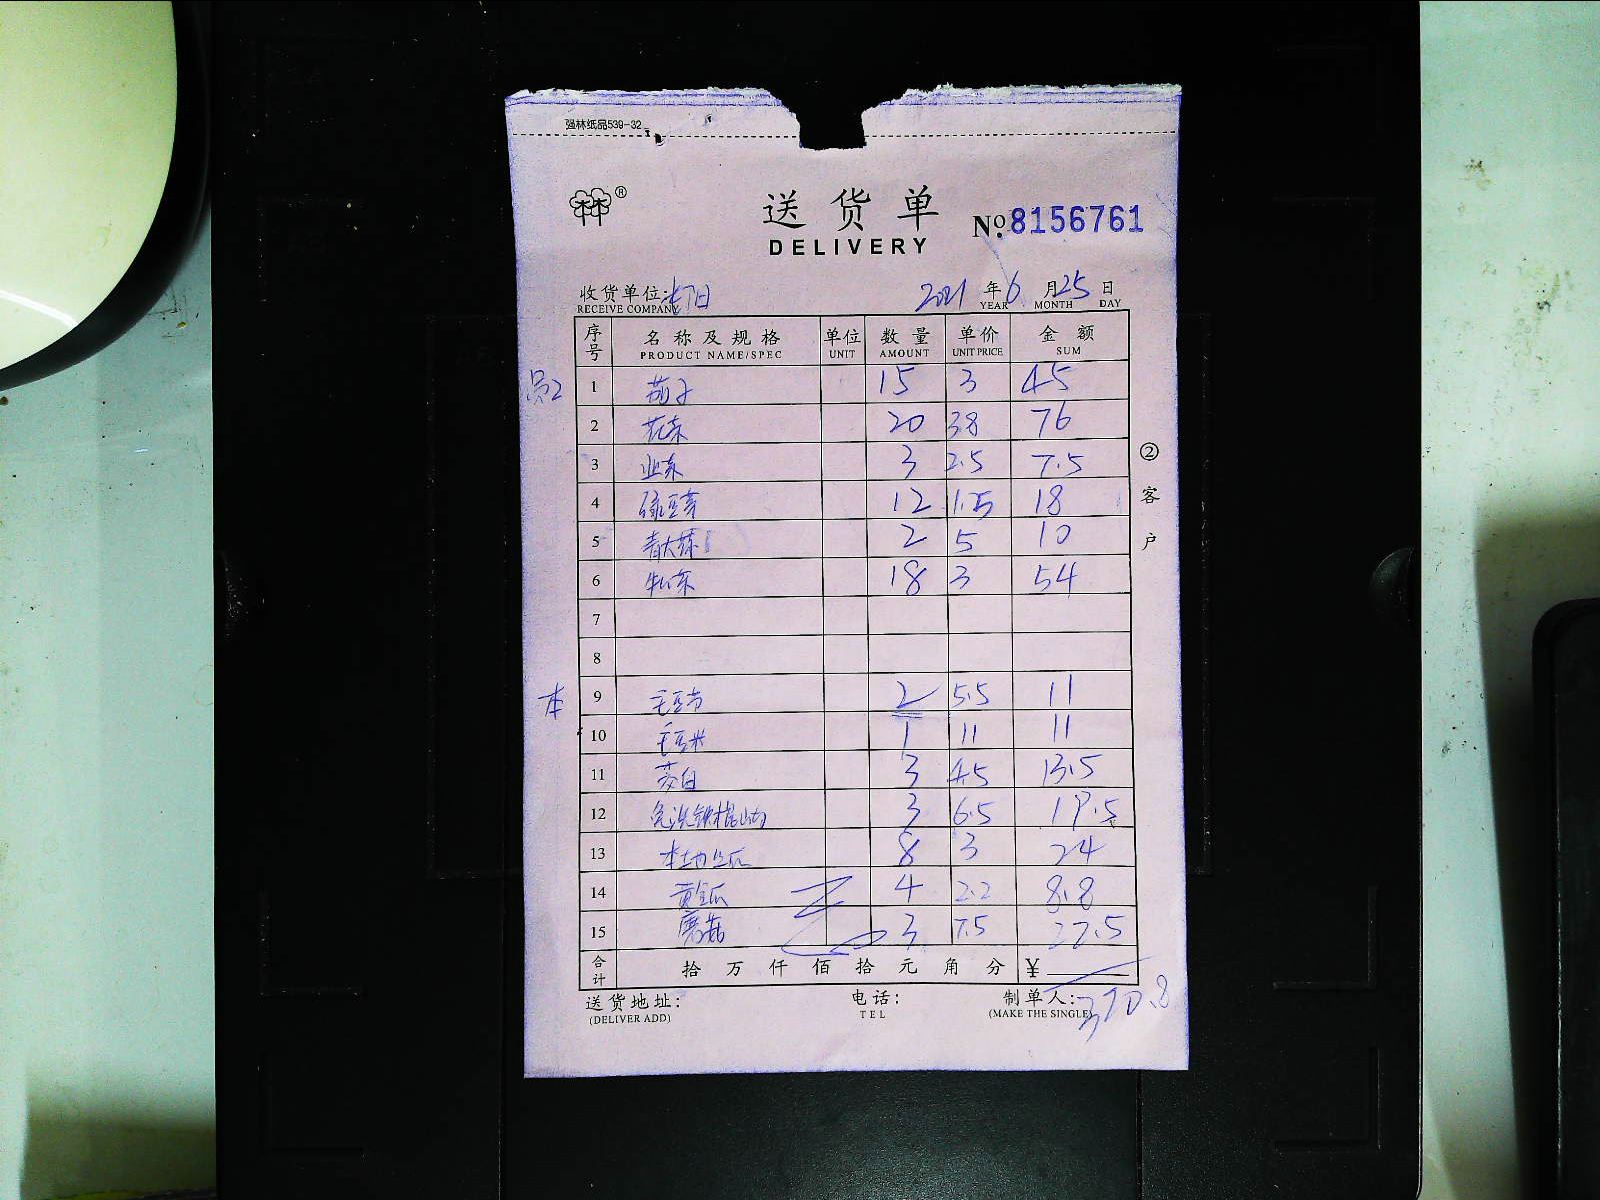 强林纸品539-32
林®
送货单
DELIVERY
№ 8156761
收货单位: 2021年6月25日
RECEIVE COMPANY YEAR MONTH DAY
序号 名称及规格 单位 数量 单价 金额
PRODUCT NAME/SPEC UNIT AMOUNT UNIT PRICE SUM
员2 1 茄子 15 3 45
2 花菜 20 38 76
3 3 2.5 7.5
4 绿豆芽 12 1.5 18
5 青大椒 2 5 10
6 18 3 54
7
8
本 9 毛豆 2 5.5 11
10 毛豆米 1 11 11
11 茭白 3 4.5 13.5
12 免洗铁棍山 3 6.5 19.5
13 本土 8 3 24
14 黄金瓜 4 2.2 8.8
15 蘑菇 3 7.5 22.5
合计 拾万仟佰拾元角分 ¥
370.8
送货地址: 电话: 制单人:
(DELIVER ADD) TEL (MAKE THE SINGLE)
②客户